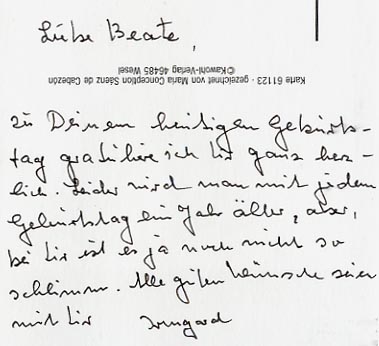 Liebe Beate,
Karte 61123 · gezeichnet von Maria Conception Sáenz de Cabezón
©Kawohl-Verlag 46485 Wesel
zu Deinem heutigen Geburts-
tag gratuliere ich Dir ganz herz-
lich. Leider wird man mit jedem
Geburtstag ein Jahr älter, aber,
bei Dir ist es ja noch nicht so
schlimm. Alle guten Wünsche seien
mit Dir Irmgard